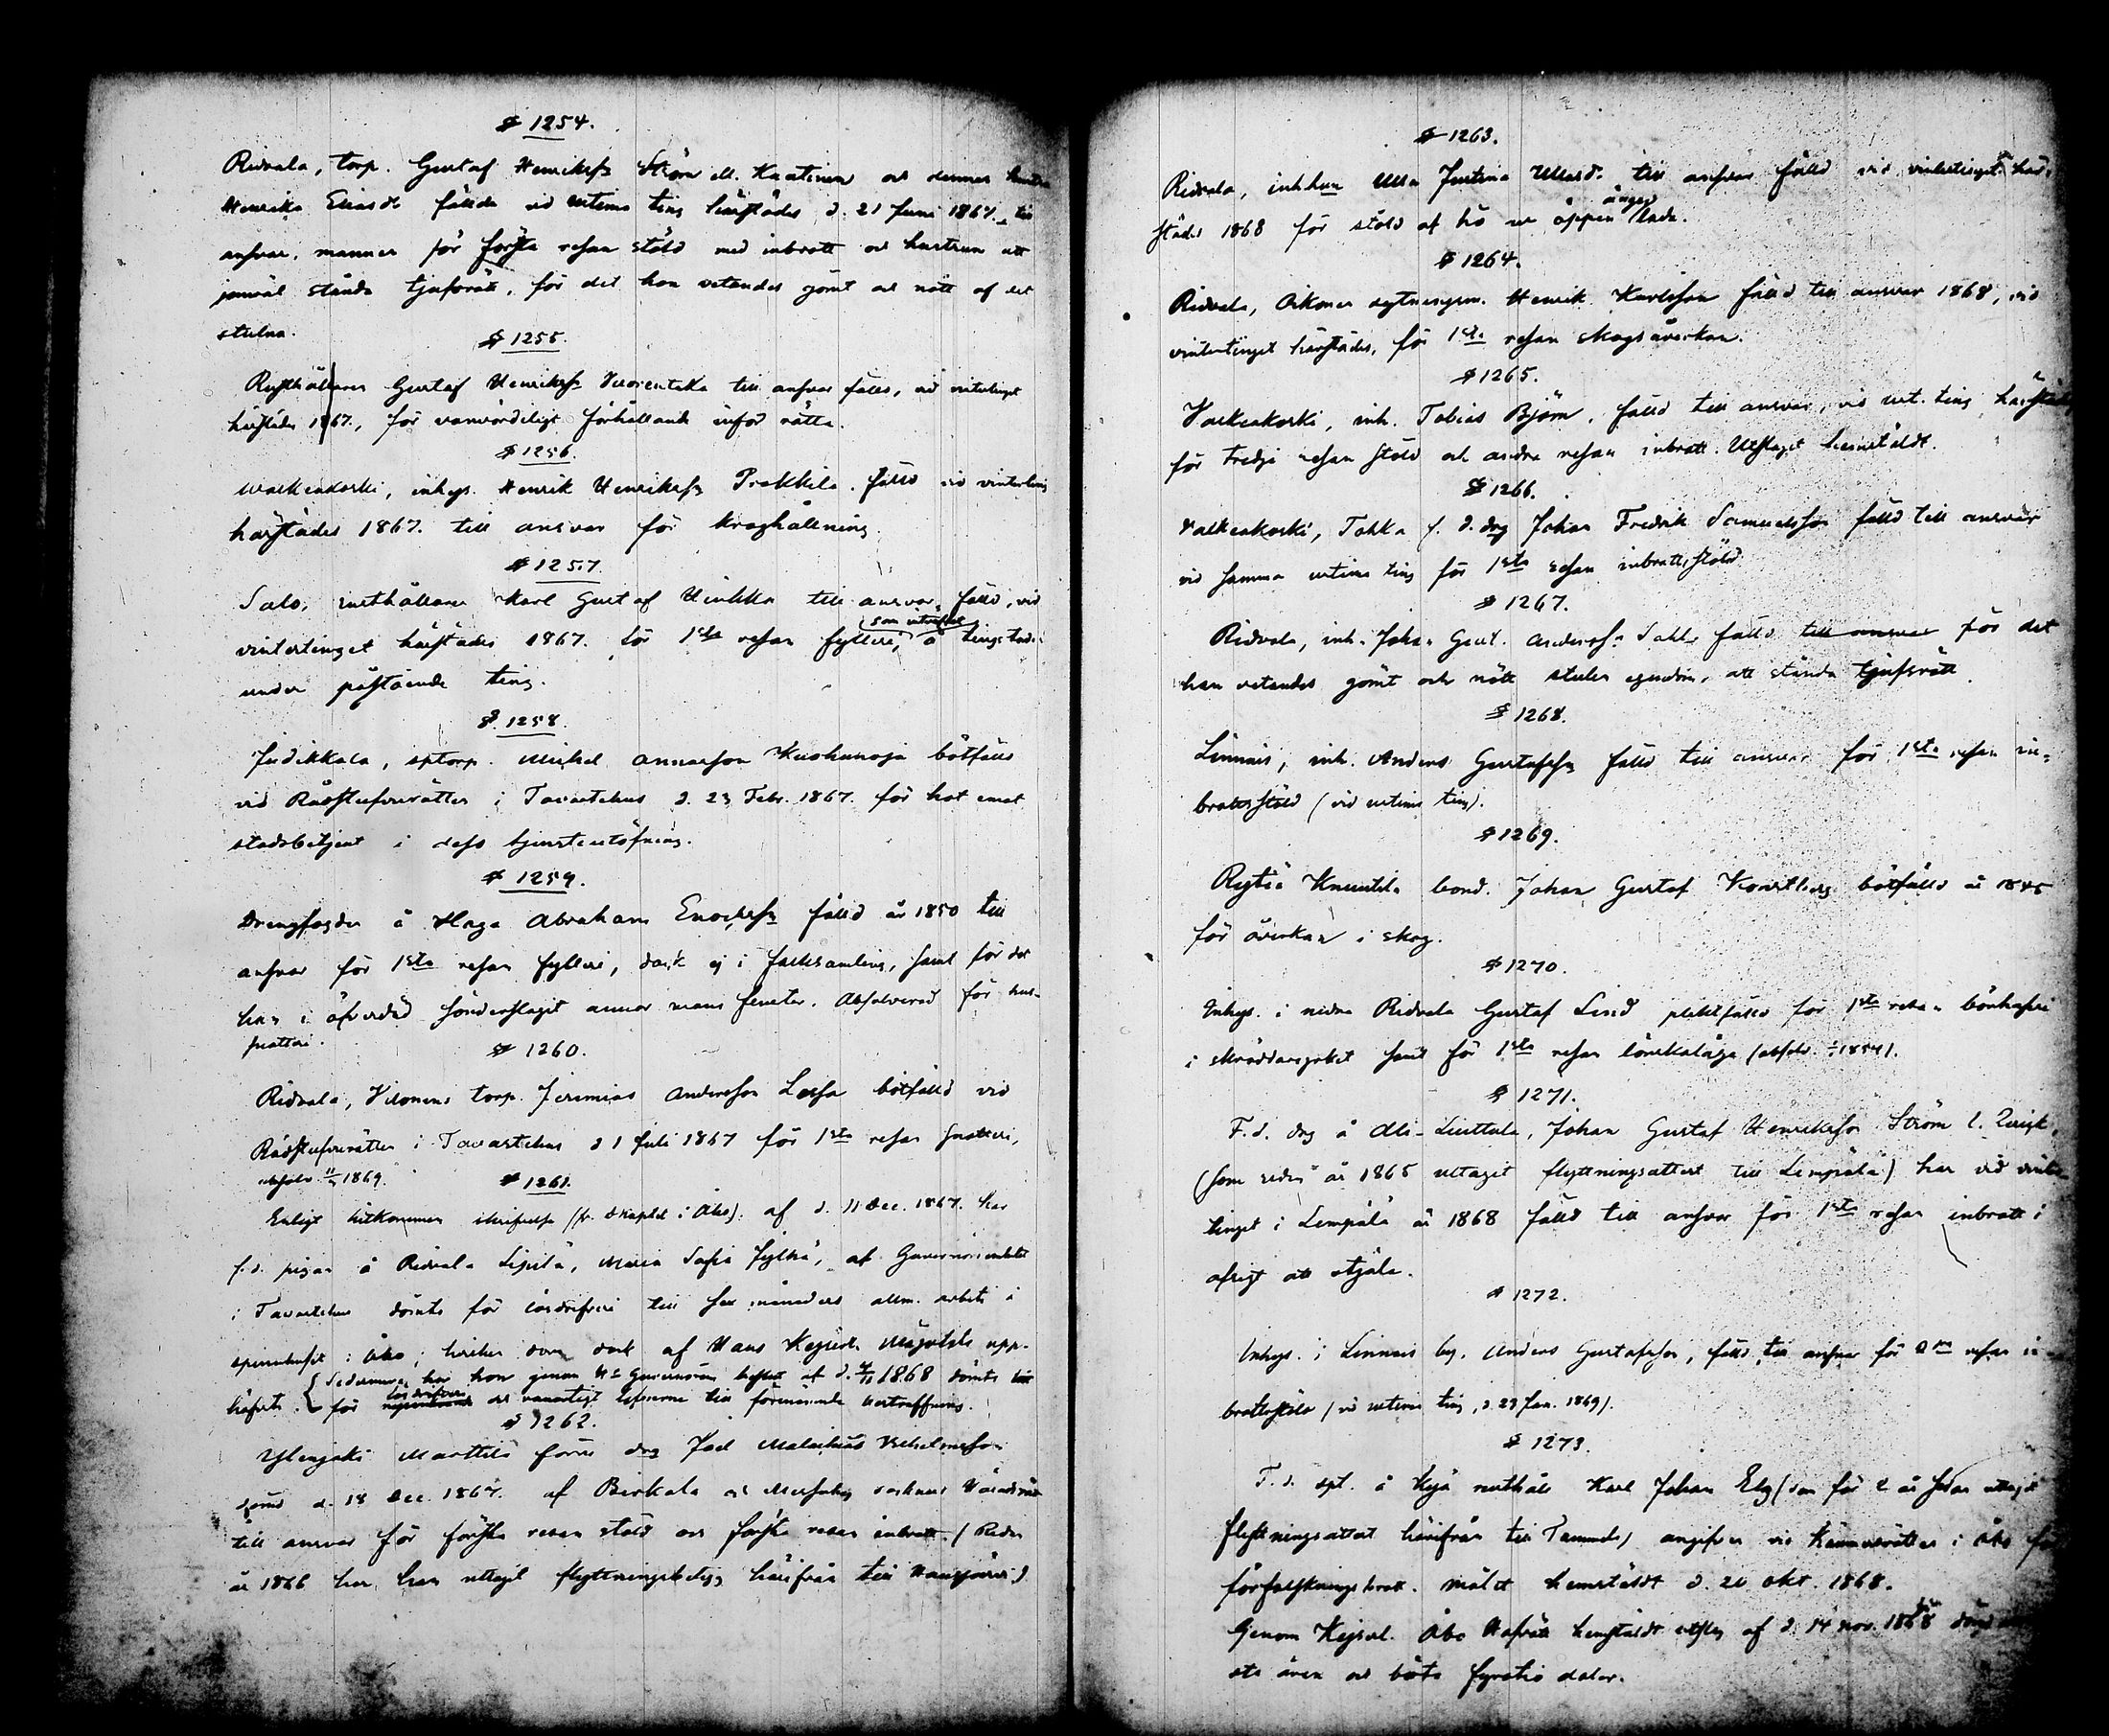 § 1254.
Ridvala, torp. Gustaf Henrikss Ström ell. Kaatinen och dennes hustru
Henrika Eliasdr fällda vid urtima ting härstädes d. 21 Juni 1867. till
ansvar, mannen för första resan stöld med inbrott och hustrun att
jemväl stånda tjufsrätt, för det hon vetandes gömt och nött af det
stulna.
§ 1255.
Rusthållaren Gustaf Henrikss till ansvar fälld, vid vintertinget
härstädes 1867., för vanvördeligt förhållande inför rätta.
§ 1256.
Walkeakoski, inhys. Henrik Henrikss Prokkila. fälld vid vinterting
härstädes 1867. till ansvar för kroghållning.
§ 1257.
Salo, rusthållaren Karl Gustaf till ansvar fälld, vid
vintertinget härstädes 1867. för 1sta resan fylleri, å tingstad
under påstående ting.
§ 1258.
Judikkala, sptorp. Michel Annasson Kuohunoja bötfälld
vid Rådstufvurätten i Tavastehus d. 23 Febr. 1867. för hot emot
stadsbetjent i dess tjensteutöfning.
§ 1259.
Drengfogden å Haga Abraham Enochss fälld år 1850 till
ansvar för 1sta resan fylleri, dock ej i folksamling, samt för det
han i öfverdåd sönderslagit annor mans fenster. Absolverad för
snatteri.
§ 1260.
Ridvala, torp. Jeremias Andersson Lassa bötfälld vid
Rådstufvurätten i Tavastehus d 1 Juli 1867 för 1sta resan snatteri,
absolv. 1869.
§ 1261.
Enligt hitkommen skrifvelse (fr. d kaplet i Åbo). af d. 11 Dec. 1867. har
f.d. pigan å Ridvala Sipilä, Maria Sofia Jylhä, af Guvernörsembetet
i Tavastehus dömts för lösdrifveri till sex månaders allm. arbete i
spinnhuset i Åbo; hvilken dom dock af Hans Kejserl. Majestät upp-
häfvts. { Sedermera har hon genom Hr Guvernörens beslut af d. 1868 dömts
för lösdrifveri och vanartigt lefverne till förenämnde bestraffning.
§ 1262.
Marttila förre drg Joel Malachias Vilhelmsson
dömd d. 18 Dec. 1867. af Birkala och Messuby socknars
till ansvar för första resan stöld och första resan inbrott. (Redan
år 1866 har han uttagit flyttningsbetyg härifrån till Hausjärvi)
§ 1263.
Ridvala, inh.hun Ulla Justina till ansvar fälld vid vintertinget här-
städes 1868 för stöld af hö ur öppen ängs lada.
§ 1264.
Ridvala, Henrik Karlsson fälld till ansvar 1868, vid
vintertinget härstädes, för 1sta resan skogsåverkan.
§ 1265.
Valkeakoski, inh. Tobias Björn, fälld till ansvar, vid urt. ting härstädes
för tredje resan stöld och andra resan inbrott. Utslaget hemstäldt.
§ 1266.
Valkeakoski, f. d. drg Johan Fredrik Samuelsson fälld till ansvar
vid samma urtima ting för 1sta resan inbrottsstöld.
§ 1267.
Ridvala, inh. Johan Gust. Anderss. fälld till ansvar för det
han vetandes gömt och nött stulen egendom, att stånda tjufsrätt.
§ 1268.
Linnais, inh. Anders Gustafss fälld till ansvar för 1sta resan in-
brottsstöld (vid urtima ting).
§ 1269.
Rytiä Knuutila bond. Johan Gustaf bötfälld år 1845
för åverkan i skog.
§ 1270.
Inhys. i nedre Ridvala Gustaf Lind pliktfälld för 1sta resan bönhaseri
i skräddaryrket samt för 1sta resan lönskaläge (absolv. 1854).
§ 1271.
F.d. drg å Ali-Liuttula, Johan Gustaf Henriksson Ström
(som redan år 1865 uttagit flyttningsattest till Lempälä) har vid vinter
tinget i Lempälä år 1868 fälld till ansvar för 1sta resan inbrott i
afsigt att stjäla.
§ 1272.
Inhys. i Linnais by. Anders Gustafsson, fälld till ansvar för 2dra resan in-
brottsstöld (vid urtima ting, d. 29 Jan. 1869).
§ 1273.
F. d. spt. å rusthåll Karl Johan Elg (som för 2 år sedan uttagit
flyttningsattest härifrån till Tammela) angifven vid Kämnersrätten i Åbo för
förfalskningsbrott. målet hemstäldt d. 20 Okt. 1868.
Genom Kejserl. Åbo Hofrätt hemstäldt utslag af d. 14 nov. 1868 dömd
sta ären och böta fyratio daler.